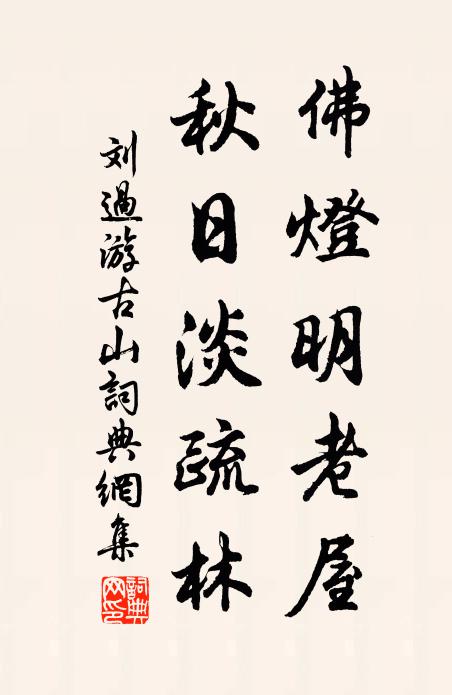 佛燈明老屋
秋日淡疏林
刘過游古山詞典網集
詞典網印